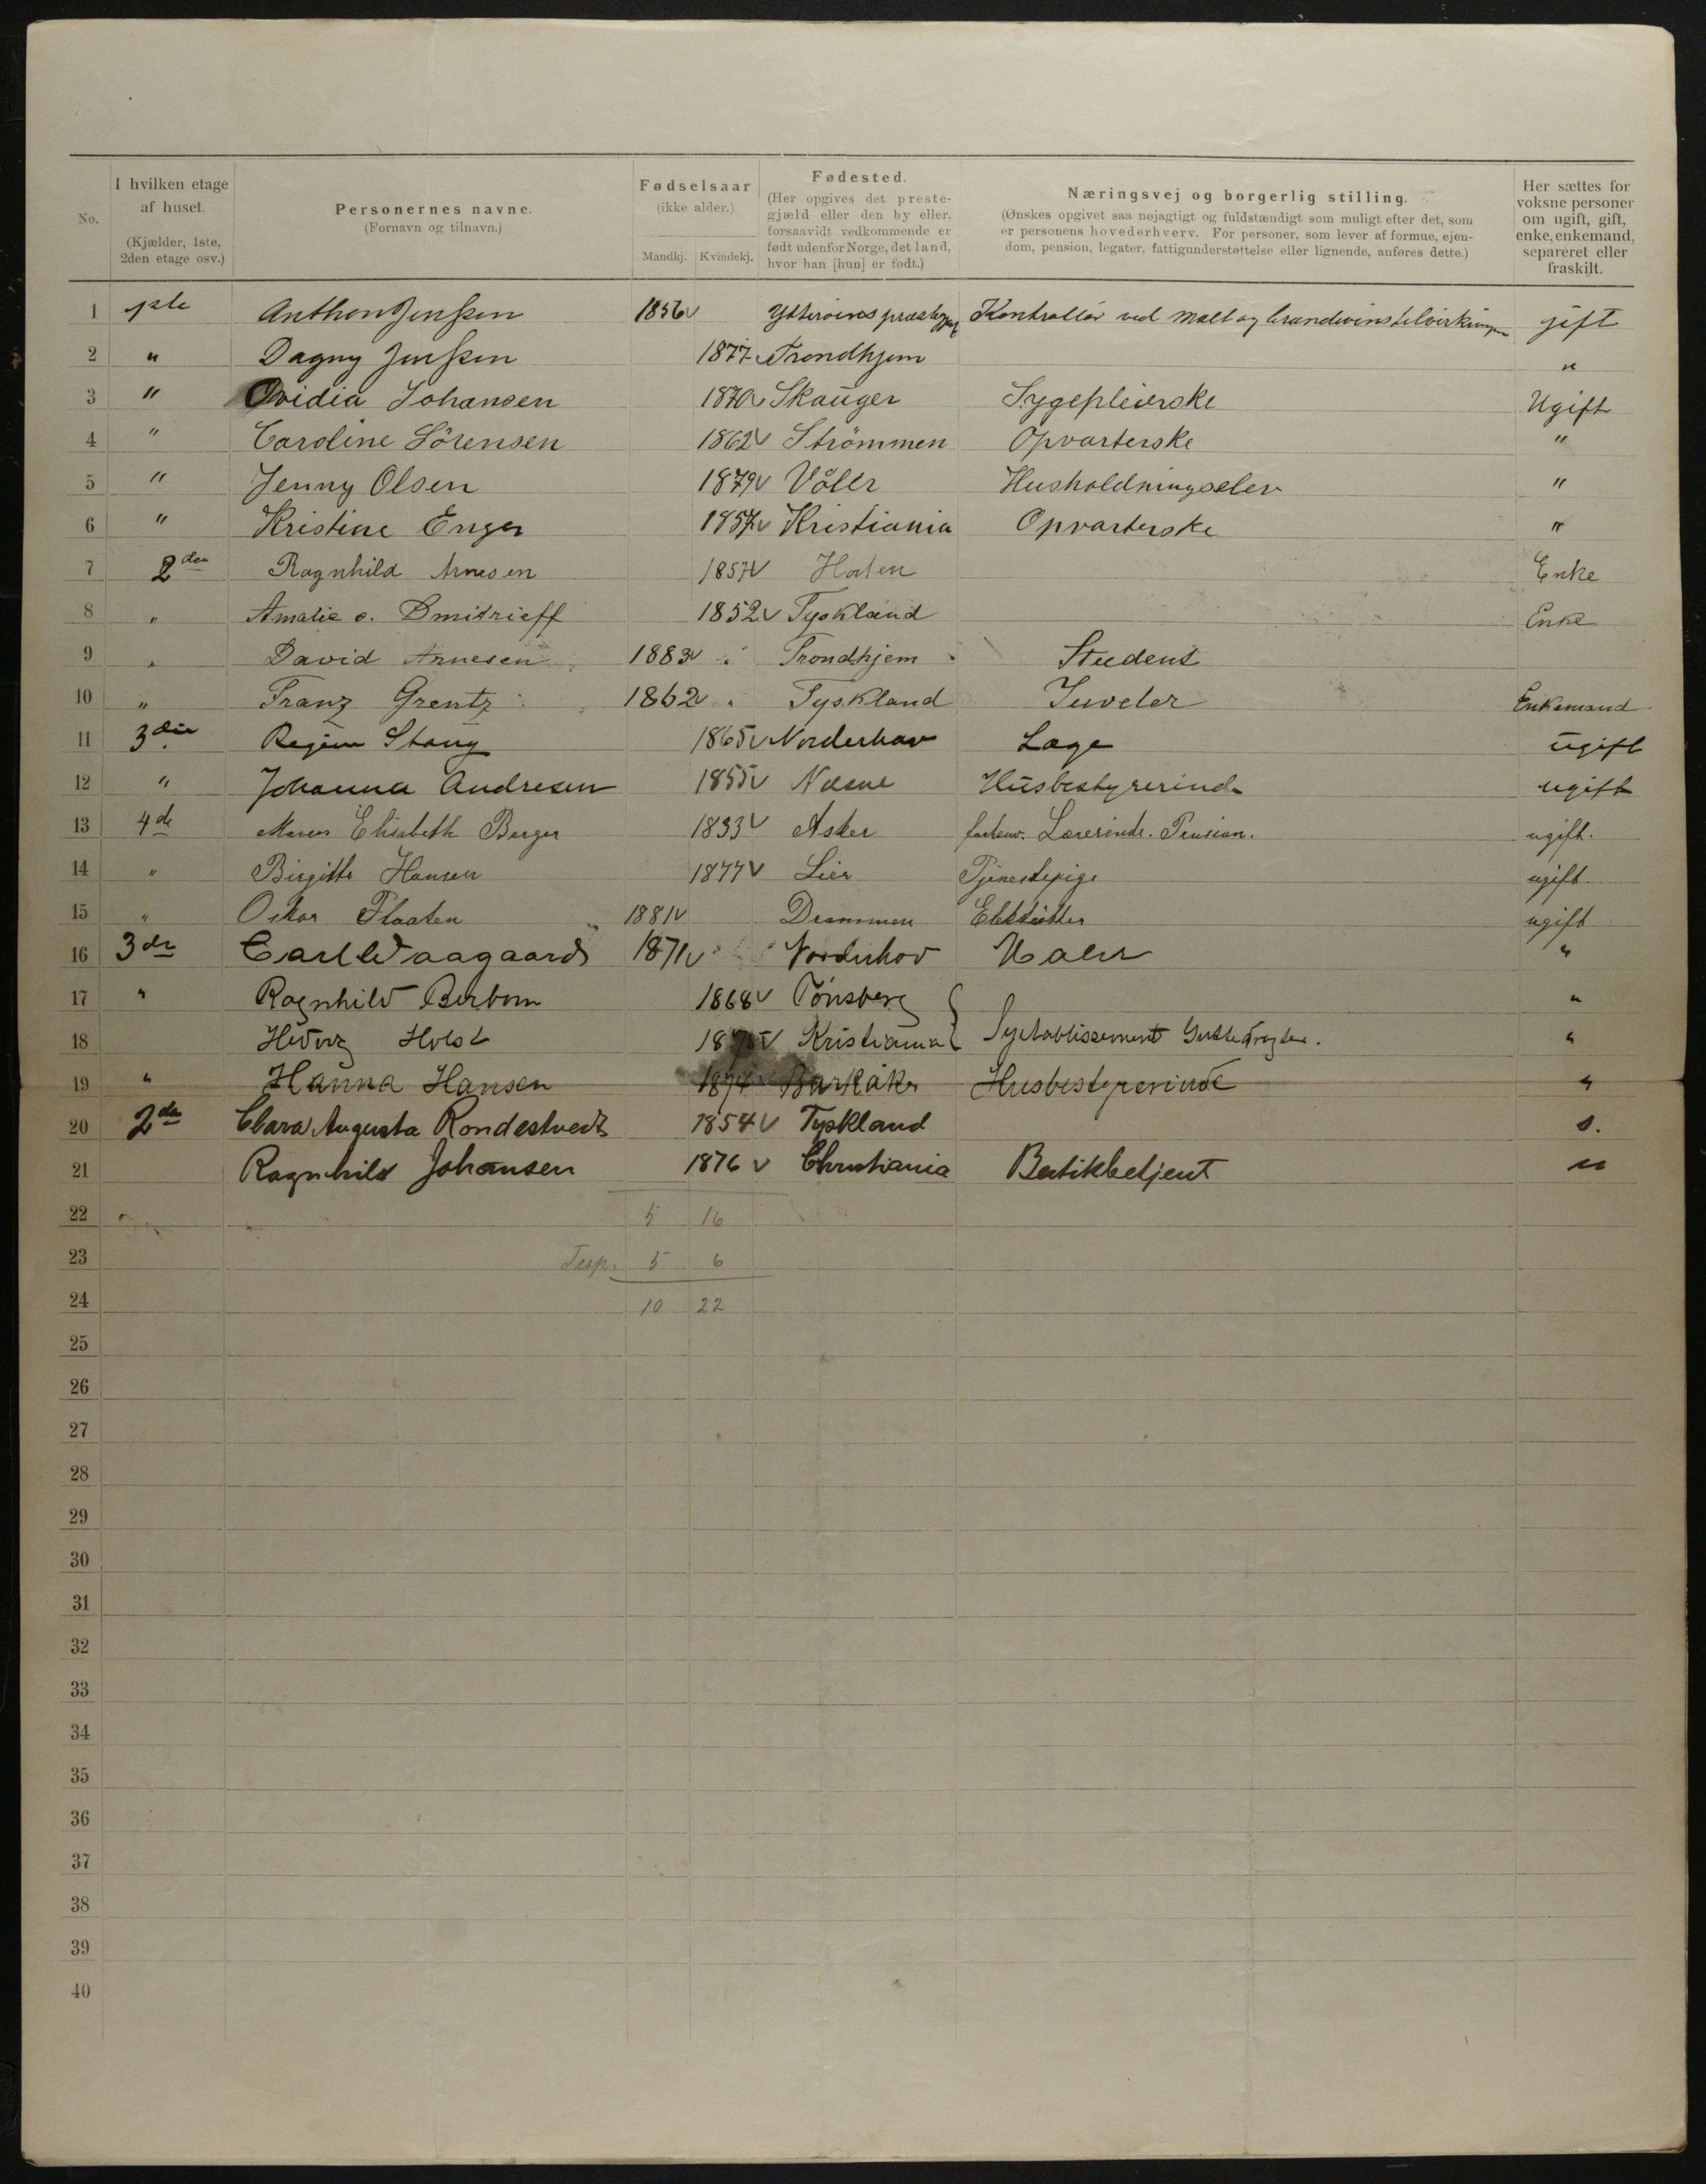 No.
I hvilken etage af huset. (Kjælder, 1ste, 2den etage osv.)
Personernes navne. (Fornavn og tilnavn.)
Fødselsaar (ikke alder.) Mandkj. Kvindekj.
Fødested. (Her opgives det prestegjæld eller den by eller, forsaavidt vedkommende er født udenfor Norge, det land, hvor han [hun] er født.)
Næringsvej og borgerlig stilling. (Ønskes opgivet saa nøjagtigt og fuldstændigt som muligt efter det, som er personens hovederhverv. For personer, som lever af formue, ejendom, pension, legater, fattigunderstøttelse eller lignende, anføres dette.)
Her sættes for voksne personer om ugift, gift, enke, enkemand, separeret eller fraskilt.
1 1ste Anthon Jenssen 1856 v Ytterøens præstegj Kontrollør ved malt og brændevinstilvirkningen gift
2 " Dagny Jenssen 1877 v Trondhjem "
3 " Ovidia Johansen 1870 v Skauger Sygepleierske Ugift
4 " Caroline Sörensen 1862 v Strömmen Opvarterske "
5 " Jenny Olsen 1879 v Våler Husholdningselev "
6 " Kristine Enger 1857 v Kristiania Opvarterske "
7 2den Ragnhild Arnesen 1857 v Horten Enke
8 " Amalie v. Dmitrieff 1852 v Tyskland Enke
9 " David Arnesen 1883 v Trondhjem Student
10 " Franz Grentz 1862 v Tyskland Juveler Enkemand
11 3die Regine Stang 1865 v Norderhov Læge ugift
12 " Johanna Andresen 1855 v Næsne Husbestyrerinde ugift
13 4de Maren Elisabeth Berger 1833 v Asker forhenv. Lærerinde. Pension. ugift.
14 " Birgitte Hansen 1877 v Lier Tjenestepige ugift
15 " Oskar Flaaten 1881 v Drammen ugift
16 3die Carl Waagaard 1871 v Norderhov Maler "
17 " Ragnhild Berbom 1868 v Tönsberg "
18 Hedvig Holst v Kristiania Syetablissement Guttedragter. "
19 " Hanna Hansen 1874 Barkåker Husbestyrerinde "
20 2den Clara Augusta Rondestvedt 1854 v Tyskland s.
21 Ragnhild Johansen 1876 v Christiania Butikbetjent u
22 5 16
23 Tesp. 5 6
24 10 22
25
26
27
28
29
30
31
32
33
34
35
36
37
38
39
40